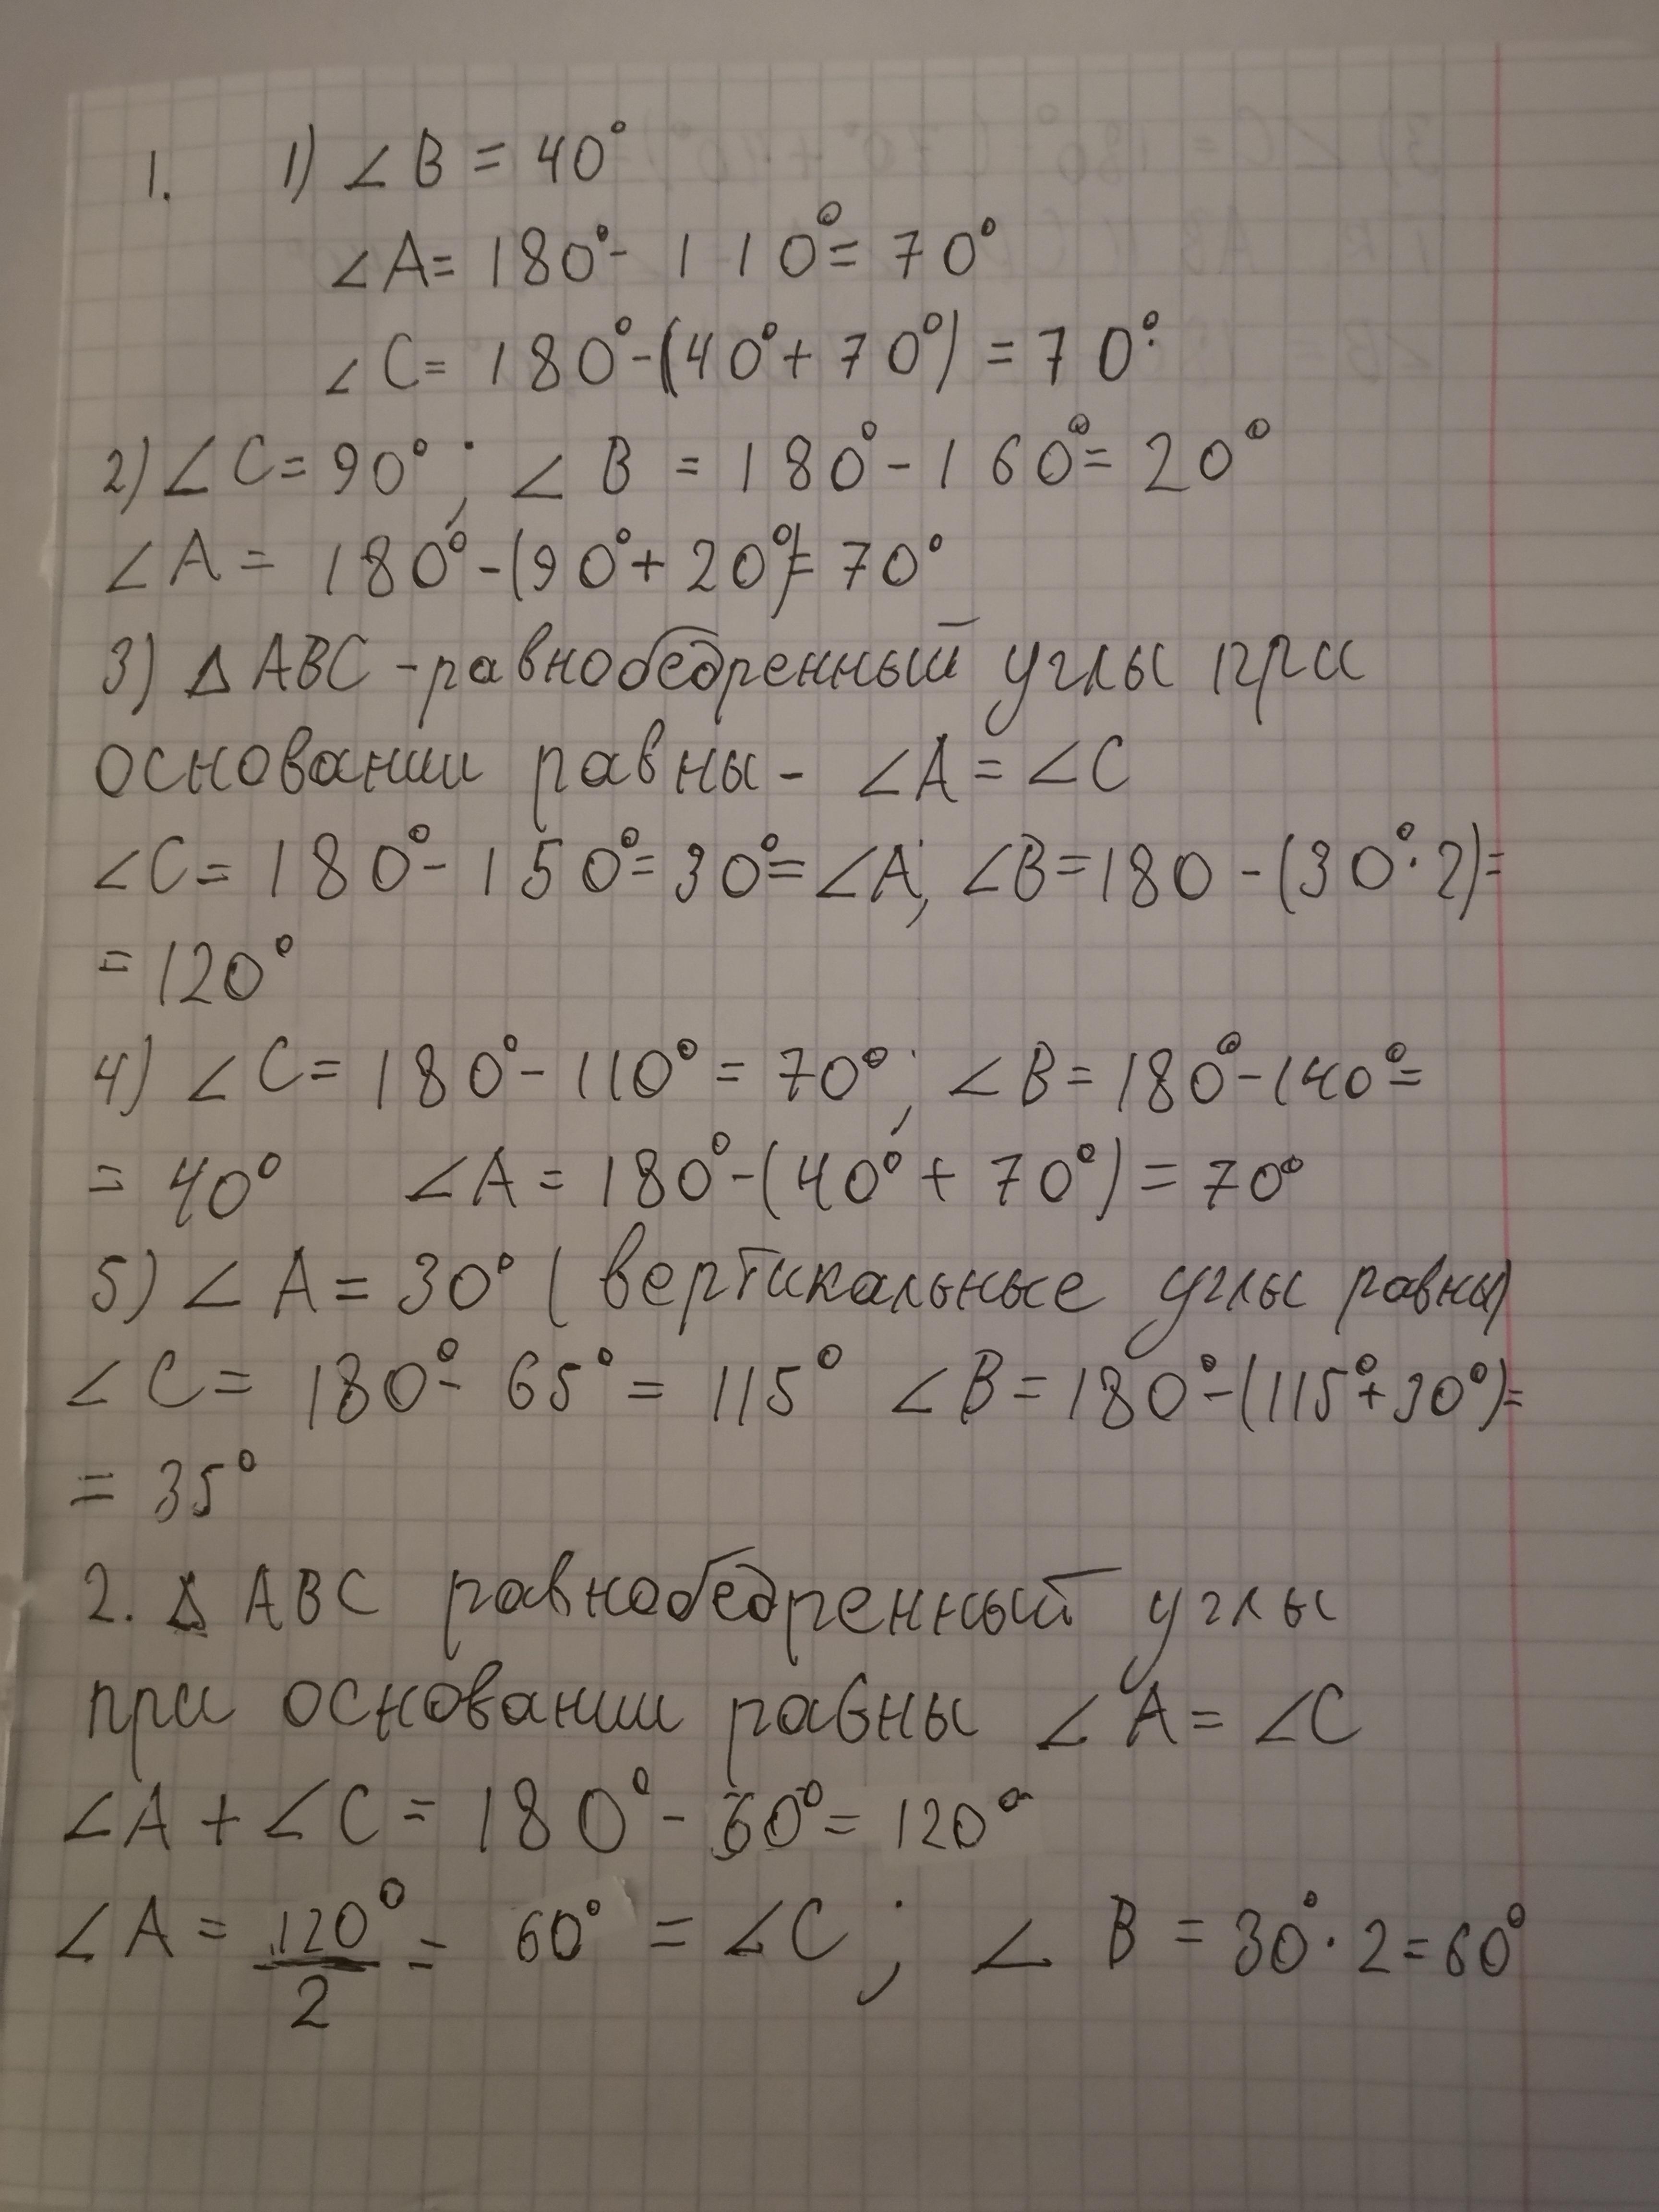 1. 1) ∠B = 40°
∠A = 180° - 110° = 70°
∠C = 180° - (40° + 70°) = 70°.
2) ∠C = 90°; ∠B = 180° - 160° = 20°
∠A = 180° - (90° + 20°) = 70°
3) Δ ABC - равнобедренный углы при
основании равны - ∠A = ∠C
∠C = 180° - 150° = 30° = ∠A; ∠B = 180 - (30° · 2) =
= 120°
4) ∠C = 180° - 110° = 70°; ∠B = 180° - 140° =
= 40° ∠A = 180° - (40° + 70°) = 70°
5) ∠A = 30° (вертикальные углы равны)
∠C = 180° - 65° = 115° ∠B = 180° - (115° + 30°) =
= 35°
2. Δ ABC равнобедренный углы
при основании равны ∠A = ∠C
∠A + ∠C = 180° - 60° = 120°
∠A = 120°/2 = 60° = ∠C; ∠B = 30° · 2 = 60°